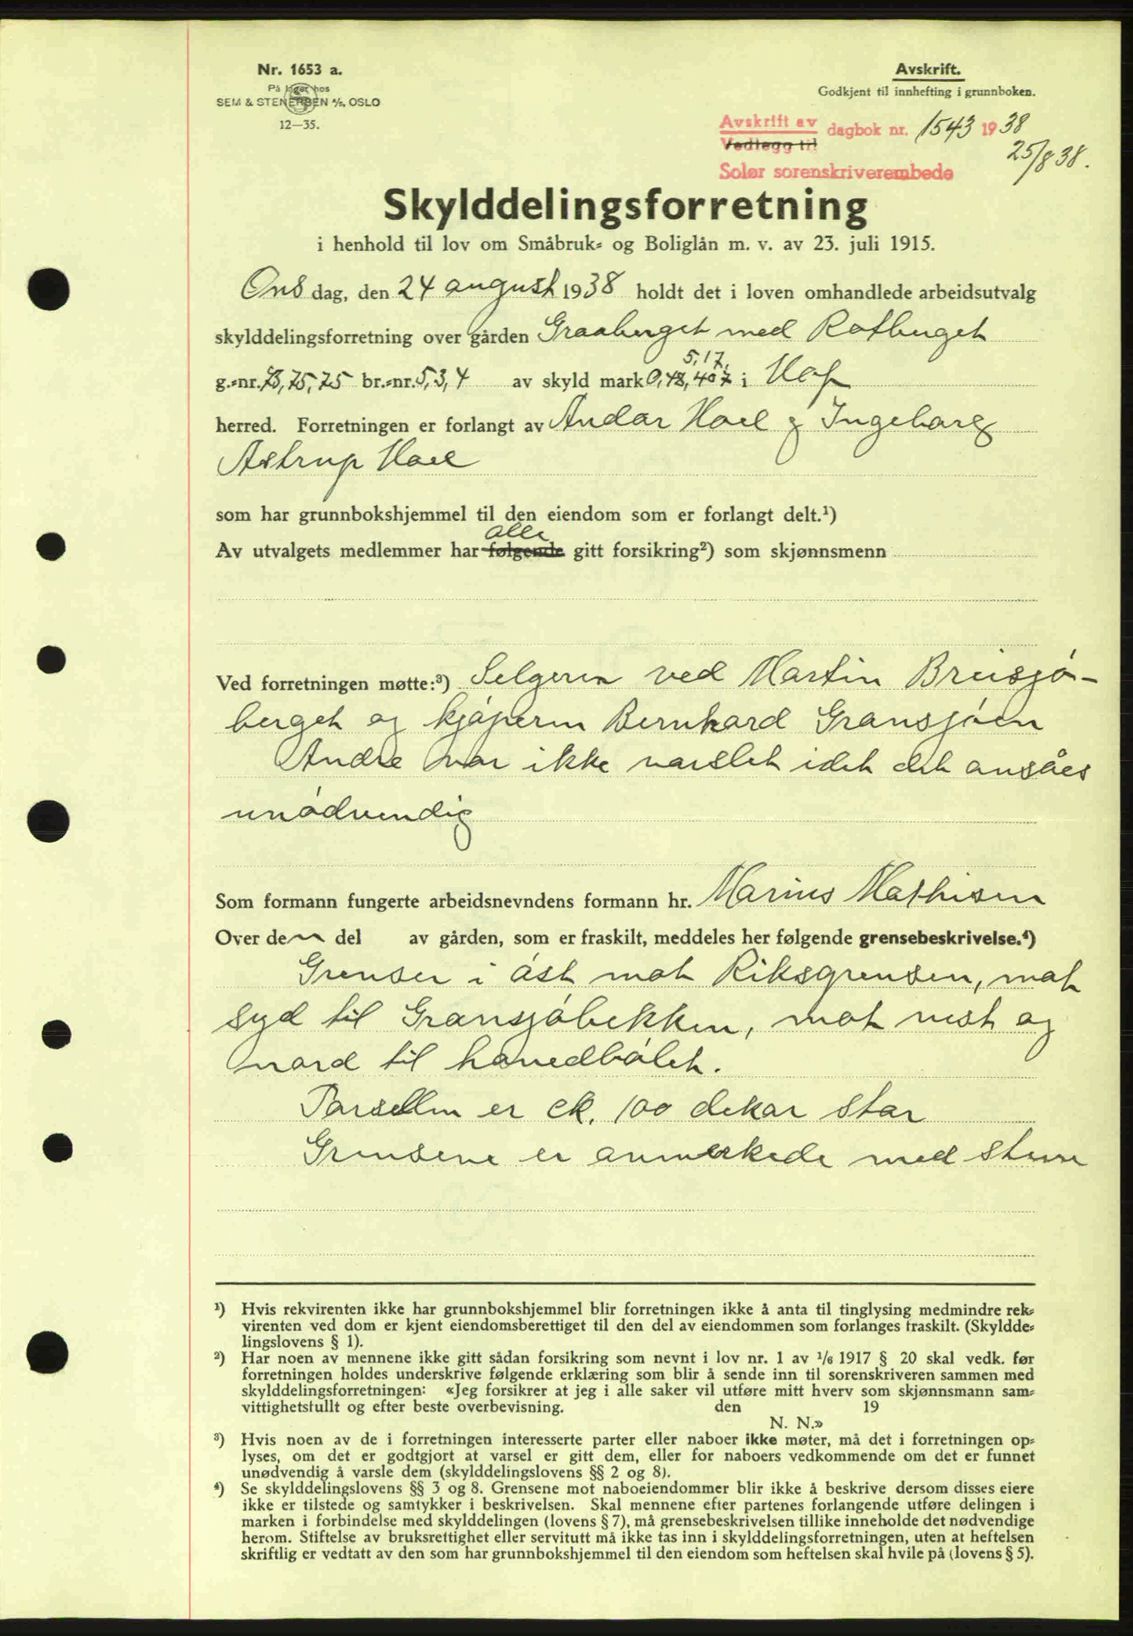 Nr. 1653 a.
På lager hos
SEM & STENERSEN A/S, OSLO
12—35.
Avskrift.
Godkjent til innhefting i grunnboken.
Avskrift av
Vedlegg til
dagbok nr. 1543 1938
25/8 38.
Solør sorenskriverembede
Skylddelingsforretning
i henhold til lov om Småbruk- og Boliglån m. v. av 23. juli 1915.
Onsdag, den 24 august 1938 holdt det i loven omhandlede arbeidsutvalg
skylddelingsforretning over gården Graaberget med Rotberget
5,17,
g.-nr. 73, 75, 75 br.-nr. 5, 3, 4 av skyld mark 0,48, 407 i Hof
herred. Forretningen er forlangt av Andor Hoel g Ingeborg
Astrup Hoel
som har grunnbokshjemmel til den eiendom som er forlangt delt.¹)
alle
Av utvalgets medlemmer har følgende gitt forsikring²) som skjønnsmenn
Ved forretningen møtte:³) Selgeren ved Martin Breisjö-
berget og kjöperen Bernhard Gransjöen
Andre var ikke varslet idet det ansåes
unödvendig
Som formann fungerte arbeidsnevndens formann hr. Marius Mathisen
Over den del av gården, som er fraskilt, meddeles her følgende grensebeskrivelse.⁴)
Grenser i öst mot Riksgrensen, mot
syd til Gransjöbekken, mot vest og
nord til hovedbölet.
Parsellen er ck. 100 dekar stor
Grensene er anmerkede med stene
¹) Hvis rekvirenten ikke har grunnbokshjemmel blir forretningen ikke å anta til tinglysing medmindre rek-
virenten ved dom er kjent eiendomsberettiget til den del av eiendommen som forlanges fraskilt. (Skyldde-
lingslovens § 1).
²) Har noen av mennene ikke gitt sådan forsikring som nevnt i lov nr. 1 av ¹/₆ 1917 § 20 skal vedk. før
forretningen holdes underskrive følgende erklæring som blir å sende inn til sorenskriveren sammen med
skylddelingsforretningen: «Jeg forsikrer at jeg i alle saker vil utføre mitt hverv som skjønnsmann sam-
vittighetsfullt og efter beste overbevisning. den 19
N. N.»
³) Hvis noen av de i forretningen interesserte parter eller naboer ikke møter, må det i forretningen op-
lyses, om det er godtgjort at varsel er gitt dem, eller for naboers vedkommende om det er funnet
unødvendig å varsle dem (skylddelingslovens §§ 2 og 8).
⁴) Se skylddelingslovens §§ 3 og 8. Grensene mot naboeiendommer blir ikke å beskrive dersom disses eiere
ikke er tilstede og samtykker i beskrivelsen. Skal mennene efter partenes forlangende utføre delingen i
marken i forbindelse med skylddelingen (lovens § 7), må grensebeskrivelsen tillike inneholde det nødvendige
herom. Stiftelse av bruksrettighet eller servitutt må ikke tas inn i skylddelingsforretningen, uten at heftelsen
skriftlig er vedtatt av den som har grunnbokshjemmel til den eiendom som heftelsen skal hvile på (lovens § 5).